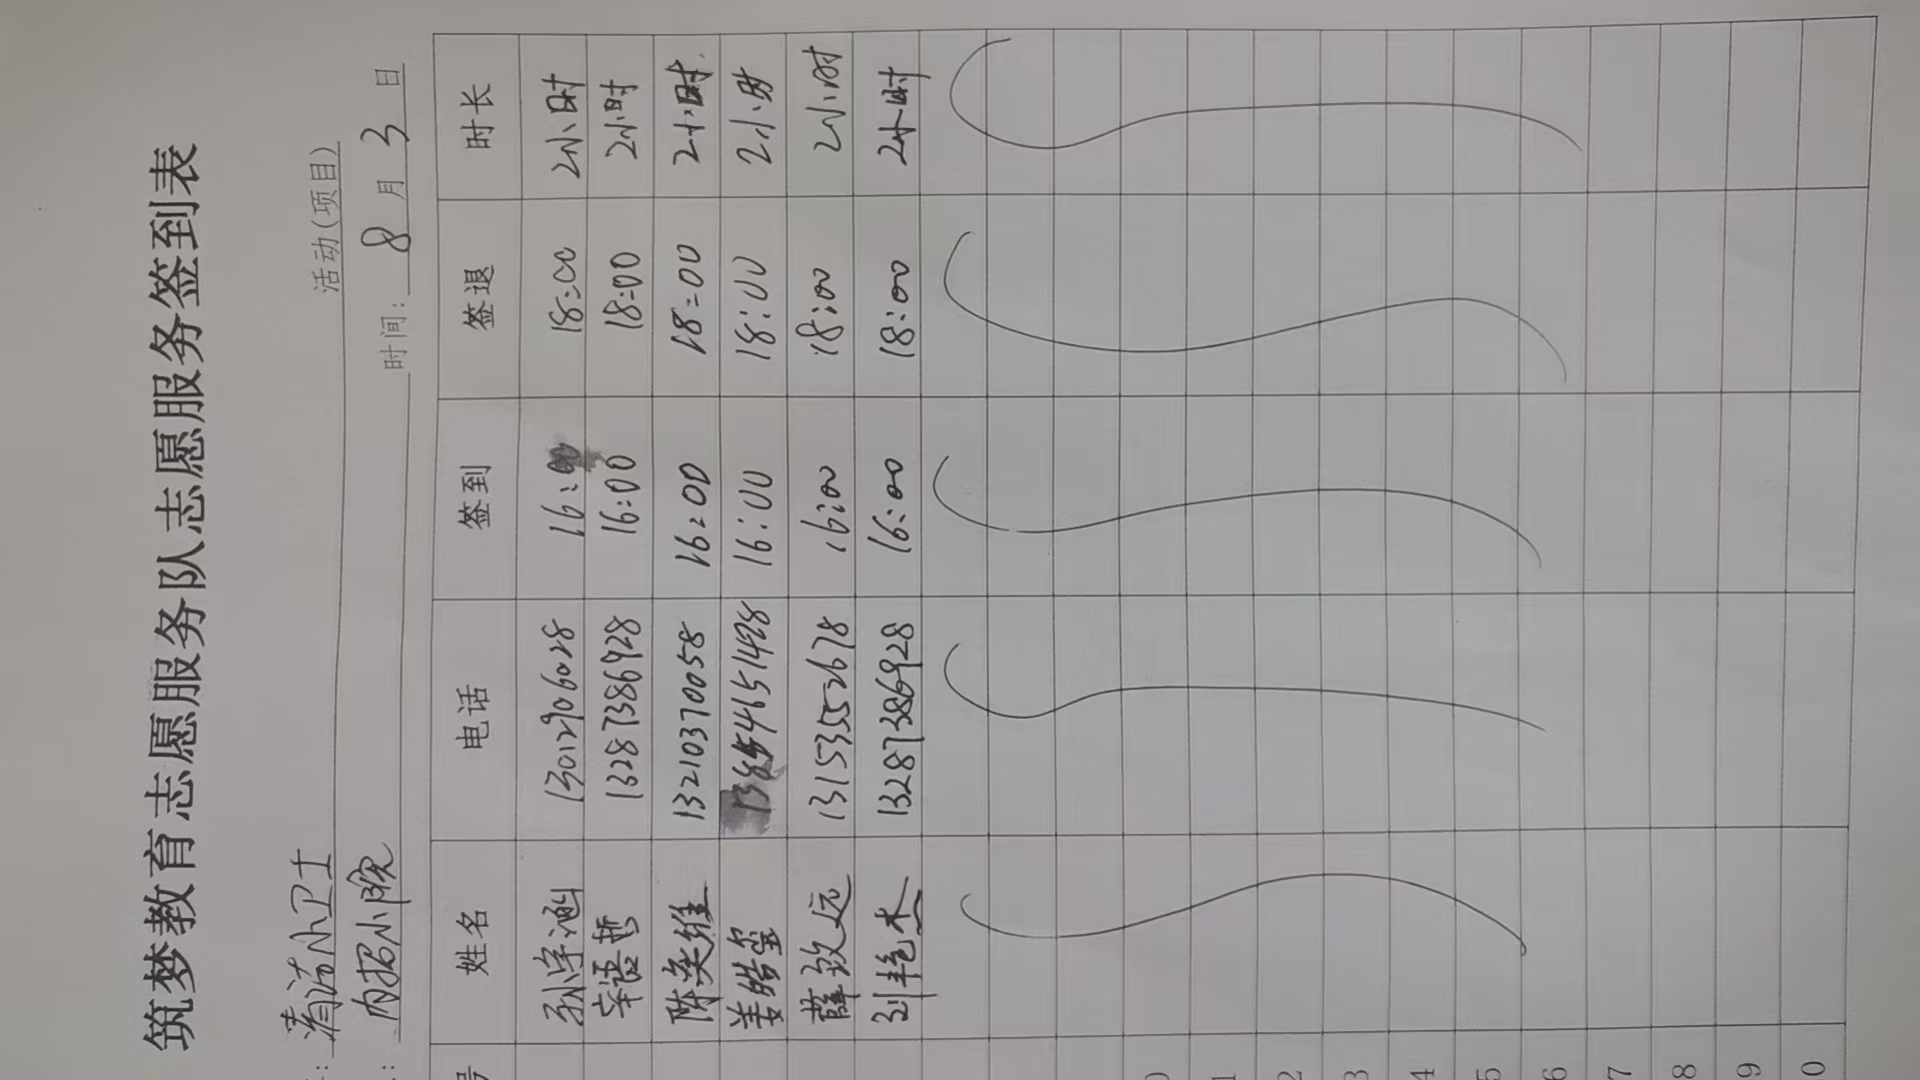 筑梦教育志愿服务队志愿服务签到表
: 清洁小卫士 活动(项目)
: 内招小院 时间: 8 月 3 日
号 姓名 电话 签到 签退 时长
孙宇涵 13012906028 16:00 18:00 2小时
辛语哲 13287386928 16:00 18:00 2小时
陈奕维 13210370058 16:00 18:00 2小时
姜皓玺 16:00 18:00 2小时
薛致远 13153552678 16:00 18:00 2小时
刘艳杰 13287386928 16:00 18:00 2小时
0
1
2
3
4
5
6
7
8
9
0